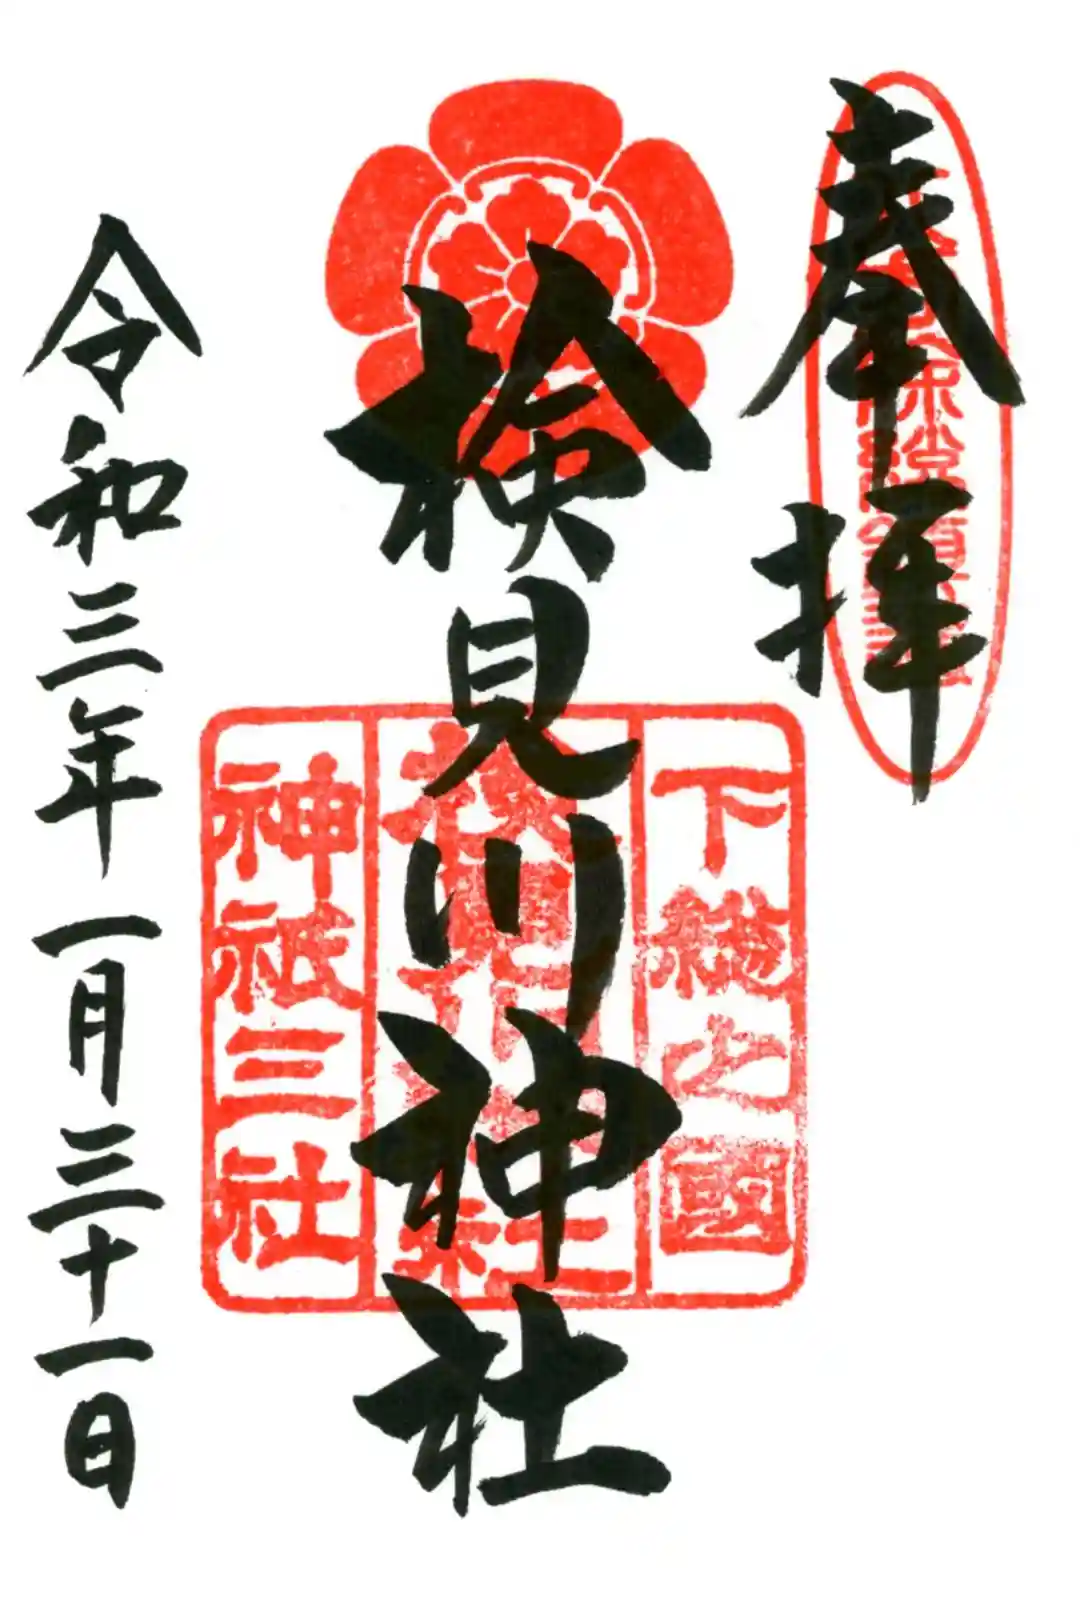 奉拝
下総之國
検見川神社
神祇三社
令和三年一月三十一日